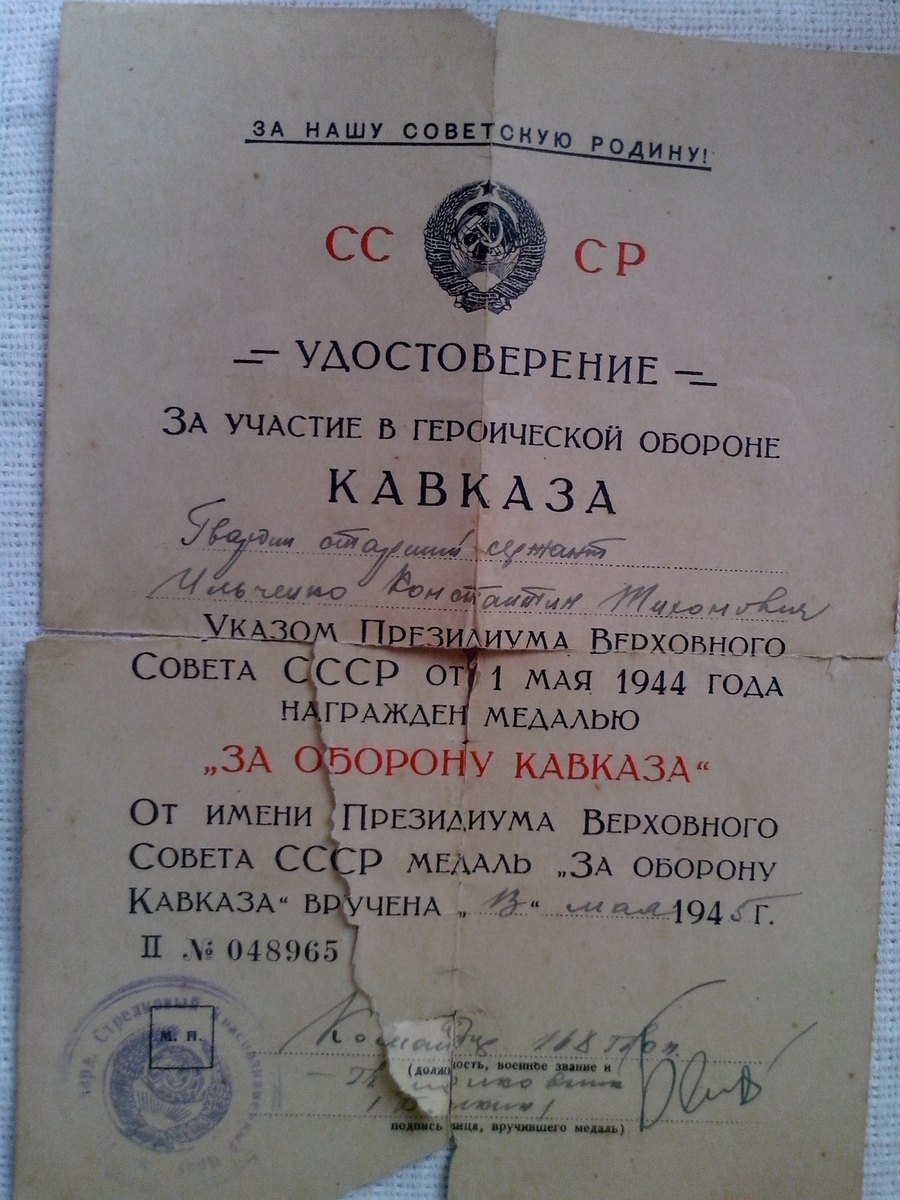 ЗА НАШУ СОВЕТСКУЮ РОДИНУ!
СССР
УДОСТОВЕРЕНИЕ
ЗА УЧАСТИЕ В ГЕРОИЧЕСКОЙ ОБОРОНЕ
КАВКАЗА
Гвардии старший сержант
Ильченко Константин Тихонович
УКАЗОМ ПРЕЗИДИУМА ВЕРХОВНОГО
СОВЕТА СССР ОТ 1 МАЯ 1944 ГОДА
НАГРАЖДЕН МЕДАЛЬЮ
„ЗА ОБОРОНУ КАВКАЗА“
ОТ ИМЕНИ ПРЕЗИДИУМА ВЕРХОВНОГО
СОВЕТА СССР МЕДАЛЬ „ЗА ОБОРОНУ
КАВКАЗА“ ВРУЧЕНА „13“ мая 1945 г.
II № 048965
Стрелковый Краснознаменный
М. П.
Командир 168
(должность, военное звание и
подпись лица, вручившего медаль)